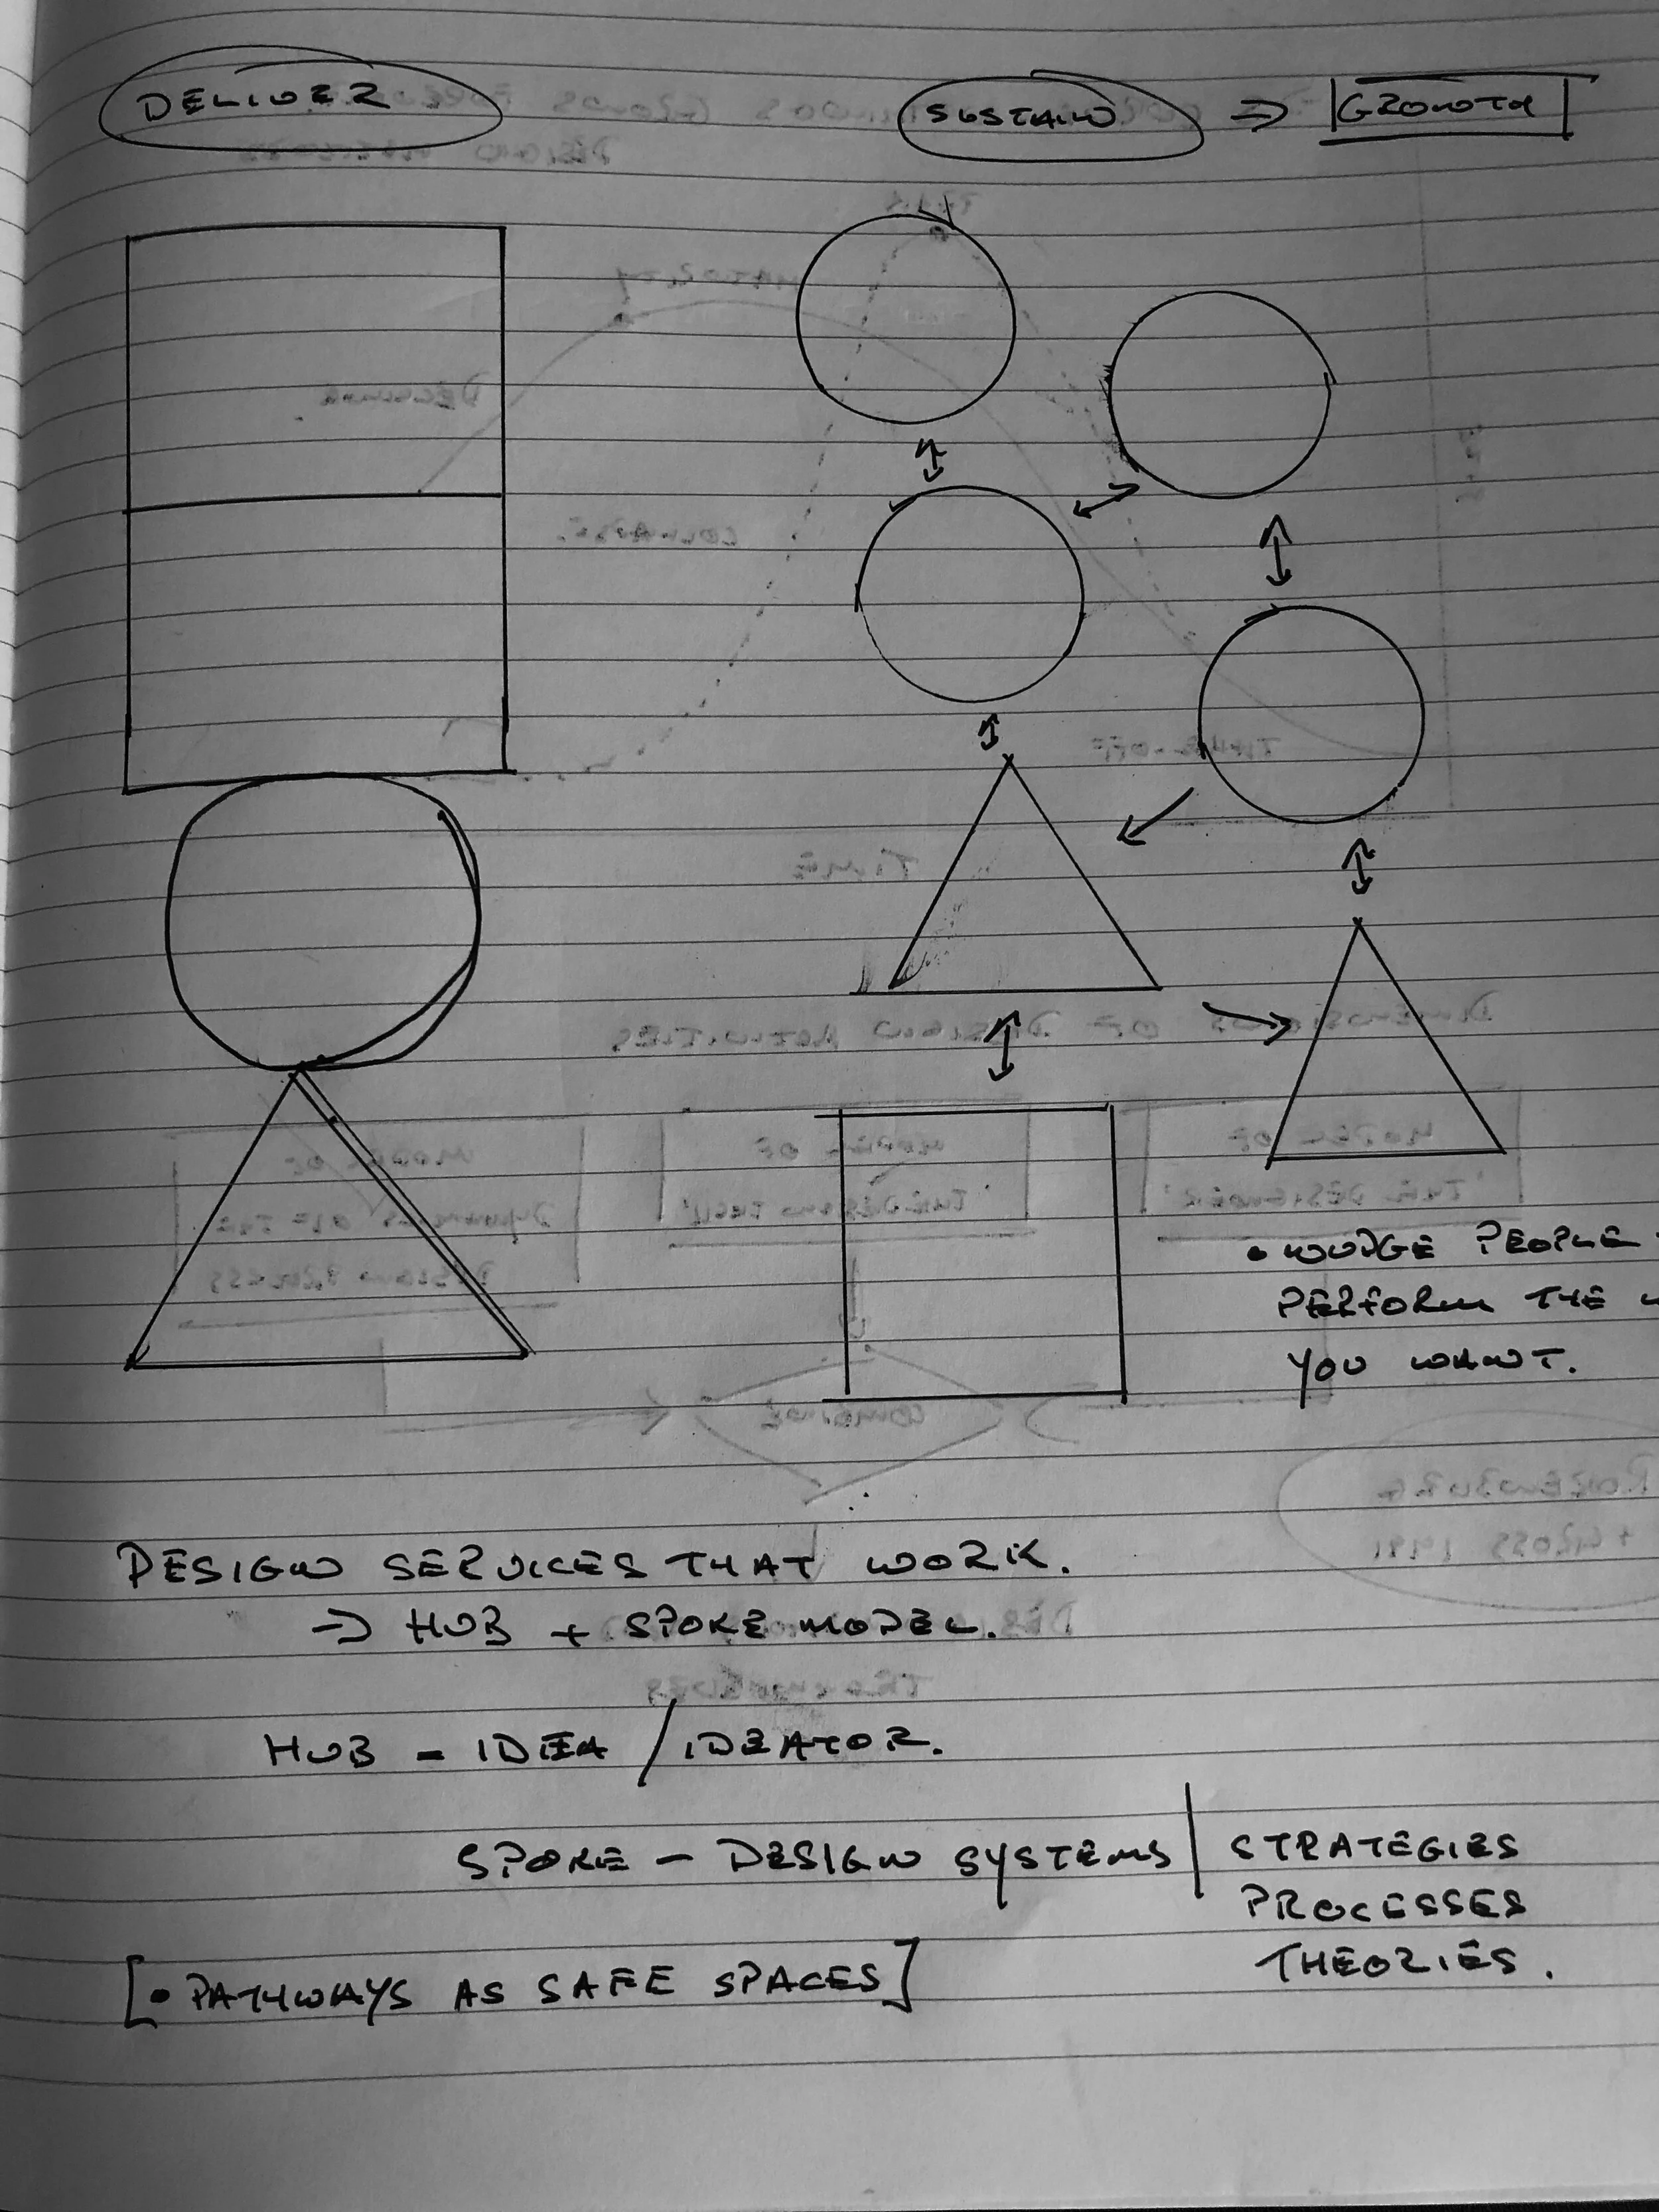 DELIVER
SUSTAIN ⇒ GROWTH
• NUDGE PEOPLE
PERFORM THE
YOU WANT.
DESIGN SERVICES THAT WORK.
⇒ HUB + SPOKE MODEL.
HUB - IDEA / IDEATOR.
SPOKE - DESIGN SYSTEMS | STRATEGIES
PROCESSES
THEORIES.
[• PATHWAYS AS SAFE SPACES]